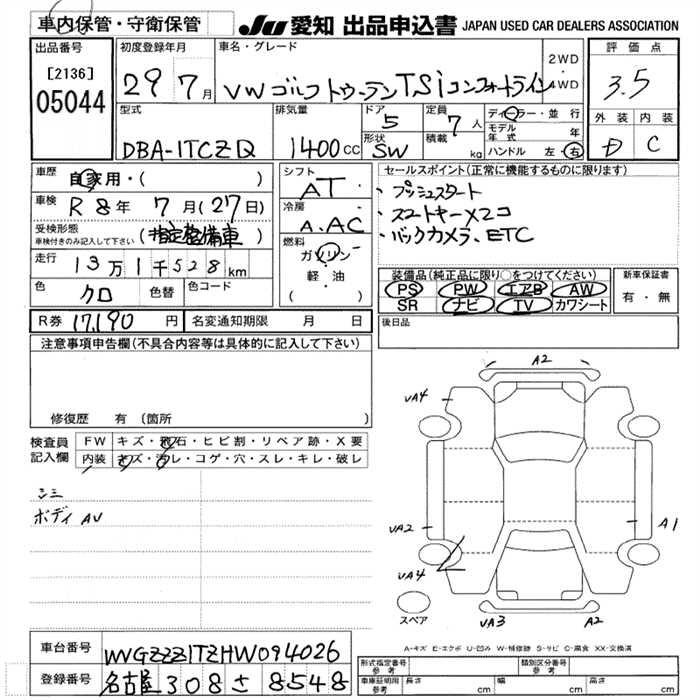 車内保管・守衛保管
JU 愛知 出品申込書 JAPAN USED CAR DEALERS ASSOCIATION
出品番号
[2136]
05044
初度登録年月
29 7月
車名・グレード
VW ゴルフトゥーランTSiコンフォートライン
2WD
・
4WD
評価点
3.5
外装 内装
D C
型式
DBA-1TCZD
排気量
1400cc
ドア
5
形状
SW
定員
7人
積載
kg
ディーラー・並行
モデル年式 年
ハンドル 左・右
車歴
自家用・( )
車検
R8年 7月(27日)
受検形態
車検付きのみ記入して下さい
(指定整備車)
走行
13万1千528km
色
クロ
色替
色コード
シフト
AT
冷房
A.AC
燃料
ガソリン
軽・油
( )
セールスポイント(正常に機能するものに限ります)
・プッシュスタート
・スマートキー×2コ
・バックカメラ、ETC
装備品(純正品に限り○をつけてください)
PS PW エアB AW
SR ナビ TV カワシート
新車保証書
有・無
R券 17,190円
名変通知期限 月 日
後日品
注意事項申告欄(不具合内容等は具体的に記入して下さい)
修復歴 有(箇所 )
検査員記入欄
FW キズ・飛石・ヒビ割・リペア跡・X要
内装 キズ・汚レ・コゲ・穴・スレ・キレ・破レ
シミ
ボディ AU
A2
UA4
UA2
A1
UA4
UA3
A2
スペア
A-キズ E-エクボ U-凹み W-補修跡 S-サビ C-腐食 XX-交換済
車台番号
WVGZZZ1TZHW094026
登録番号
名古屋308さ8548
形式指定番号
参考
類別区分番号
参考
車庫証明用
参考
長さ cm
幅 cm
高さ cm